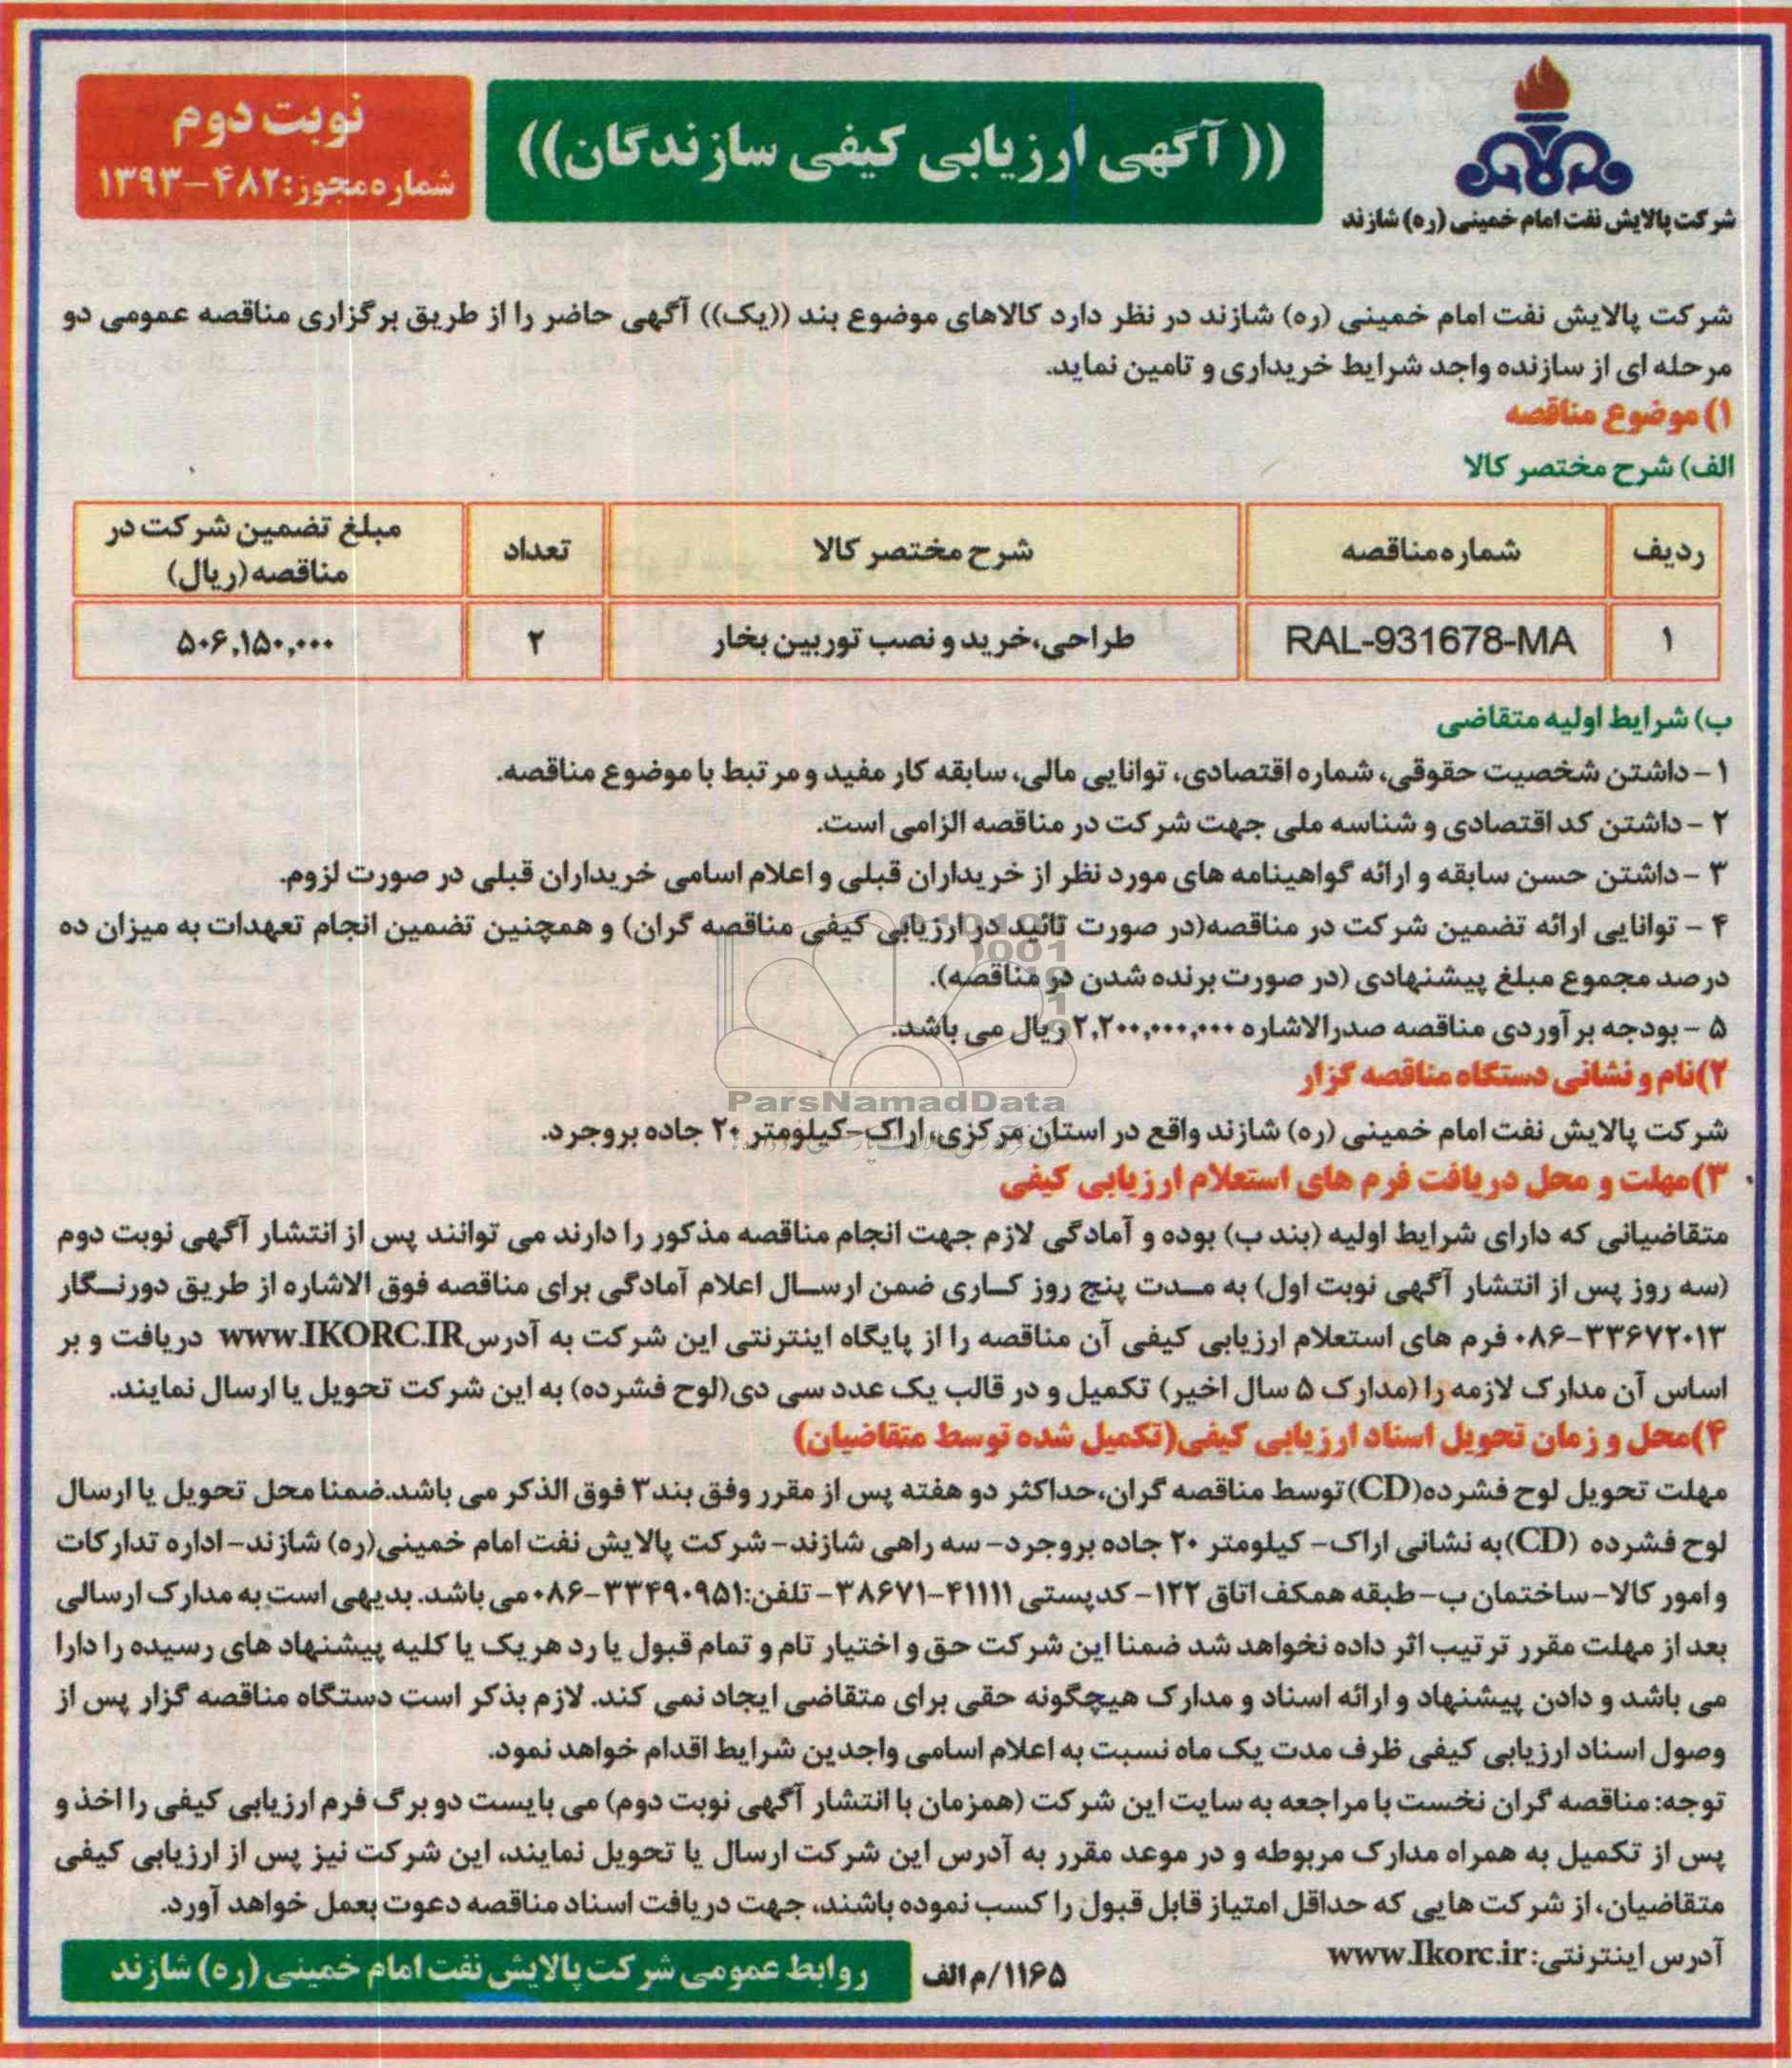 شرکت پالایش نفت امام خمینی (ره) شازند
(( آگهی ارزیابی کیفی سازندگان))
نوبت دوم
شماره مجوز: ۴۸۲-۱۳۹۳
شرکت پالایش نفت امام خمینی (ره) شازند در نظر دارد کالاهای موضوع بند ((یک)) آگهی حاضر را از طریق برگزاری مناقصه عمومی دو
مرحله ای از سازنده واجد شرایط خریداری و تامین نماید.
۱) موضوع مناقصه
الف) شرح مختصر کالا
ردیف	شماره مناقصه	شرح مختصر کالا	تعداد	مبلغ تضمین شرکت در مناقصه (ریال)
۱	RAL-931678-MA	طراحی،خرید و نصب توربین بخار	۲	۵۰۶,۱۵۰,۰۰۰
ب) شرایط اولیه متقاضی
۱- داشتن شخصیت حقوقی، شماره اقتصادی، توانایی مالی، سابقه کار مفید و مرتبط با موضوع مناقصه.
۲ - داشتن کد اقتصادی و شناسه ملی جهت شرکت در مناقصه الزامی است.
۳ - داشتن حسن سابقه و ارائه گواهینامه های مورد نظر از خریداران قبلی و اعلام اسامی خریداران قبلی در صورت لزوم.
۴ - توانایی ارائه تضمین شرکت در مناقصه(در صورت تائید در ارزیابی کیفی مناقصه گران) و همچنین تضمین انجام تعهدات به میزان ده
درصد مجموع مبلغ پیشنهادی (در صورت برنده شدن در مناقصه).
۵ - بودجه برآوردی مناقصه صدرالاشاره ۲,۲۰۰,۰۰۰,۰۰۰ ریال می باشد.
۲)نام و نشانی دستگاه مناقصه گزار
ParsNamadData
شرکت پالایش نفت امام خمینی (ره) شازند واقع در استان مرکزی، اراک-کیلومتر ۲۰ جاده بروجرد.
۳)مهلت و محل دریافت فرم های استعلام ارزیابی کیفی
متقاضیانی که دارای شرایط اولیه (بند ب) بوده و آمادگی لازم جهت انجام مناقصه مذکور را دارند می توانند پس از انتشار آگهی نوبت دوم
(سه روز پس از انتشار آگهی نوبت اول) به مدت پنج روز کاری ضمن ارسال اعلام آمادگی برای مناقصه فوق الاشاره از طریق دورنگار
۰۸۶-۳۳۶۷۲۰۱۳ فرم های استعلام ارزیابی کیفی آن مناقصه را از پایگاه اینترنتی این شرکت به آدرس www.IKORC.IR دریافت و بر
اساس آن مدارک لازمه را (مدارک ۵ سال اخیر) تکمیل و در قالب یک عدد سی دی(لوح فشرده) به این شرکت تحویل یا ارسال نمایند.
۴)محل و زمان تحویل اسناد ارزیابی کیفی(تکمیل شده توسط متقاضیان)
مهلت تحویل لوح فشرده(CD)توسط مناقصه گران،حداکثر دو هفته پس از مقرر وفق بند۳ فوق الذکر می باشد.ضمنا محل تحویل یا ارسال
لوح فشرده (CD)به نشانی اراک- کیلومتر ۲۰ جاده بروجرد- سه راهی شازند- شرکت پالایش نفت امام خمینی(ره) شازند- اداره تدارکات
و امور کالا- ساختمان ب- طبقه همکف اتاق ۱۲۲- کدپستی ۴۱۱۱۱-۳۸۶۷۱- تلفن:۳۳۴۹۰۹۵۱-۰۸۶ می باشد. بدیهی است به مدارک ارسالی
بعد از مهلت مقرر ترتیب اثر داده نخواهد شد ضمنا این شرکت حق و اختیار تام و تمام قبول یا رد هریک یا کلیه پیشنهاد های رسیده را دارا
می باشد و دادن پیشنهاد و ارائه اسناد و مدارک هیچگونه حقی برای متقاضی ایجاد نمی کند. لازم بذکر است دستگاه مناقصه گزار پس از
وصول اسناد ارزیابی کیفی ظرف مدت یک ماه نسبت به اعلام اسامی واجدین شرایط اقدام خواهد نمود.
توجه: مناقصه گران نخست با مراجعه به سایت این شرکت (همزمان با انتشار آگهی نوبت دوم) می بایست دو برگ فرم ارزیابی کیفی را اخذ و
پس از تکمیل به همراه مدارک مربوطه و در موعد مقرر به آدرس این شرکت ارسال یا تحویل نمایند، این شرکت نیز پس از ارزیابی کیفی
متقاضیان، از شرکت هایی که حداقل امتیاز قابل قبول را کسب نموده باشند، جهت دریافت اسناد مناقصه دعوت بعمل خواهد آورد.
آدرس اینترنتی: www.Ikorc.ir
۱۱۶۵/م الف
روابط عمومی شرکت پالایش نفت امام خمینی (ره) شازند